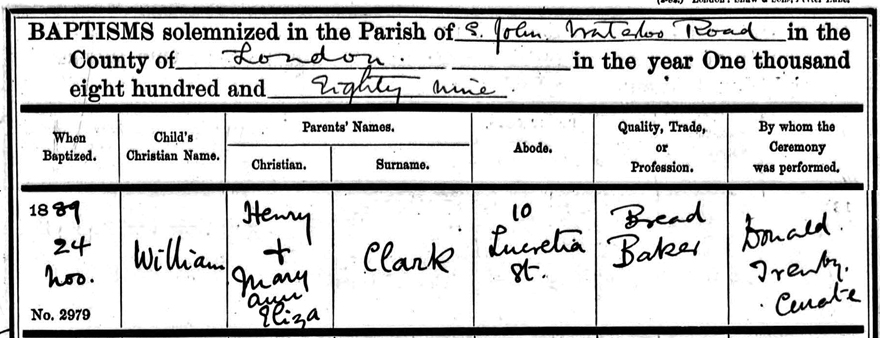 BAPTISMS solemnized in the Parish of S. John Waterloo Road in the
County of London. in the year One thousand
eight hundred and Eighty nine.
When Baptized.
Child's Christian Name.
Parents' Names.
Christian.
Surname.
Abode.
Quality, Trade, or Profession.
By whom the Ceremony was performed.
1889
24
Nov.
No. 2979
William
Henry
+
Mary
Ann
Eliza
Clark
10
Lucretia
St.
Bread
Baker
Donald
Curate